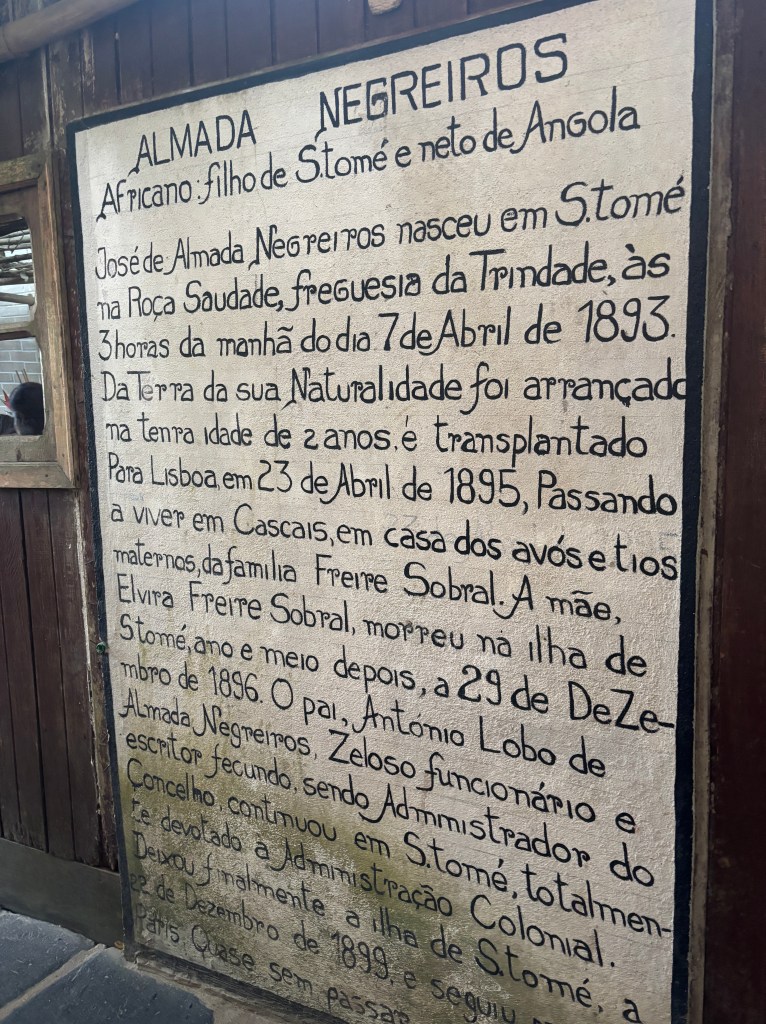 ALMADA NEGREIROS
Africano: filho de S.tomé e neto de Angola
José de Almada Negreiros nasceu em S.tomé
na Roça Saudade, freguesia da Trindade, às
3 horas da manhã do dia 7 de Abril de 1893.
Da Terra da sua Naturalidade foi arrançado
na tenra idade de 2 anos, é transplantado
Para Lisboa, em 23 de Abril de 1895, Passando
a viver em Cascais, em casa dos avós e tios
maternos, da família Freire Sobral. A mãe,
Elvira Freire Sobral, morreu na ilha de
S.tomé, ano e meio depois, a 29 de DeZe-
mbro de 1896. O pai, António Lobo de
Almada Negreiros, Zeloso funcionário e
escritor fecundo, sendo Administrador do
Concelho, continuou em S.tomé, totalmen-
te devotado a Administração Colonial.
Deixou finalmente a ilha de S.tomé, a
22 de Dezembro de 1899, e seguiu
Paris. Quase sem passar